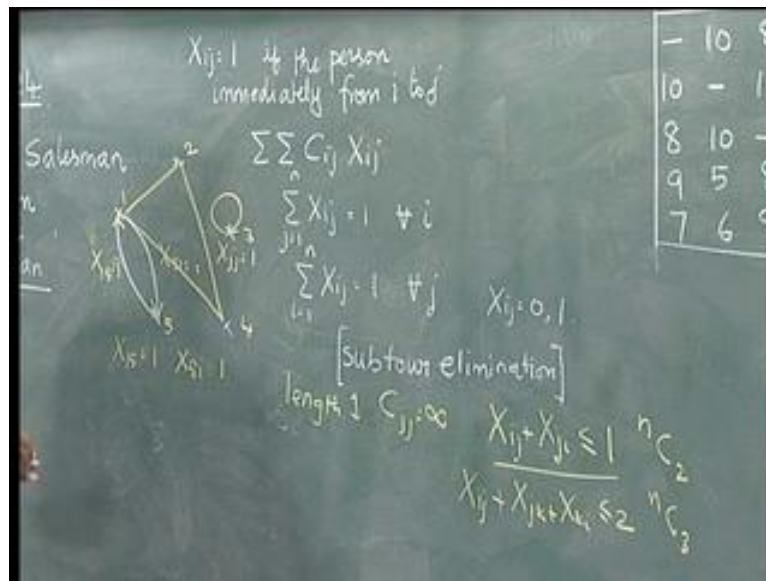 Xij=1 if the person
immediately from i to j
Salesman
ΣΣ Cij Xij
n
Σ Xij = 1 ∀ i
j=1
n
Σ Xij = 1 ∀ j
i=1
Xij=0,1.
[Subtour elimination]
length 1 Cjj=∞
Xij+Xji ≤ 1 nC2
Xij+Xjk+Xki ≤ 2 nC3
1
2
3
4
5
Xjj=1
X15=1 X51=1
- 10 8
10 - 1
8 10 -
9 5 8
7 6 9